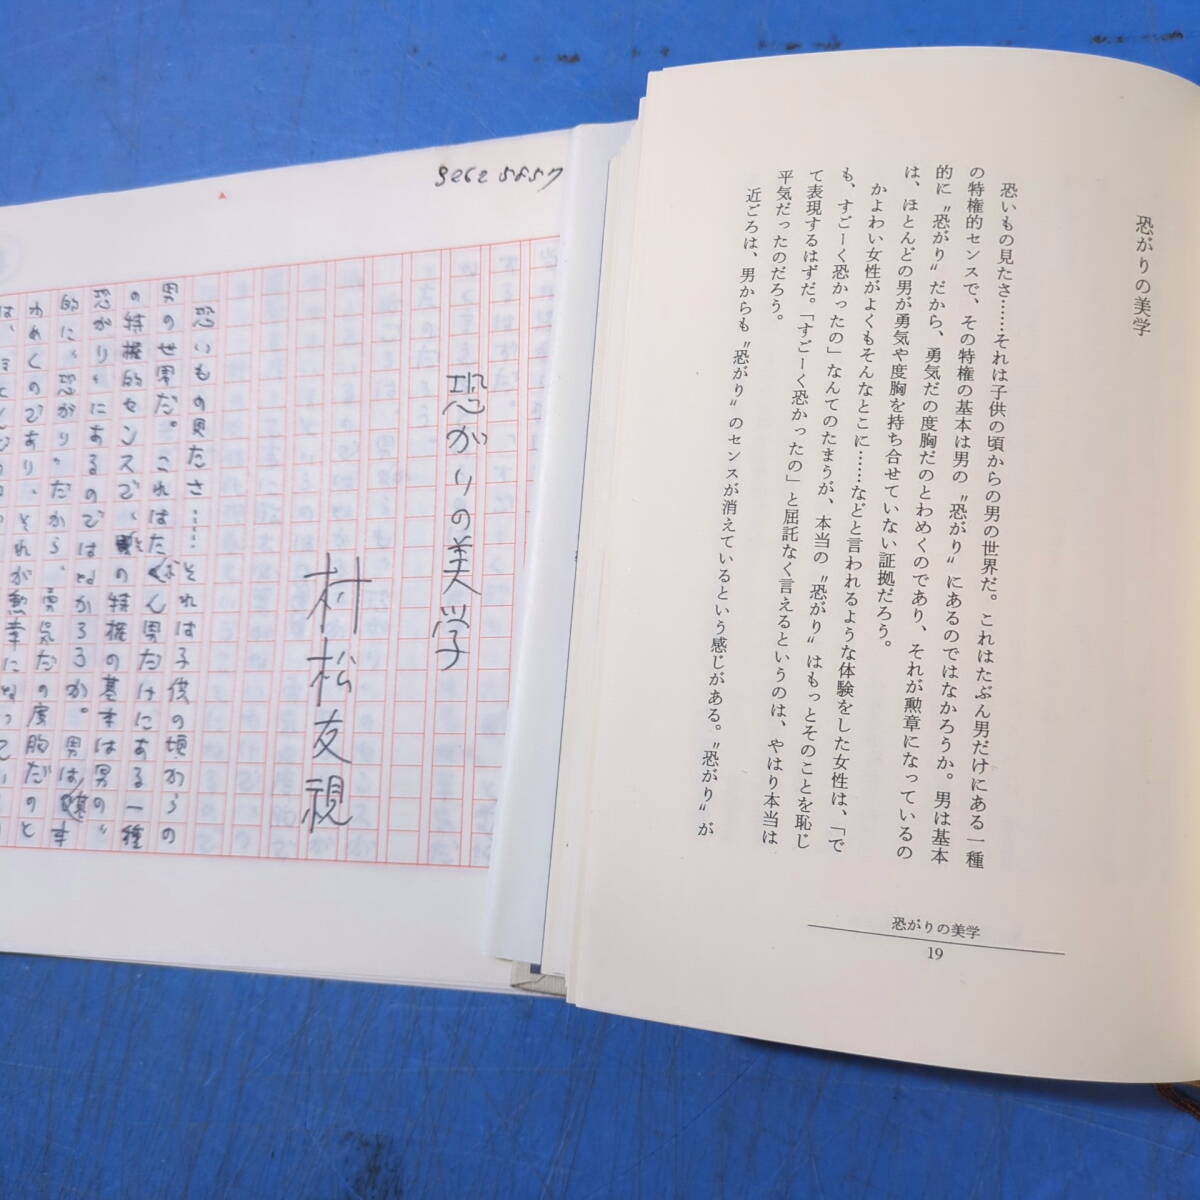 恐がりの美学
恐いもの見たさ……それは子供の頃からの男の世界だ。これはたぶん男だけにある一種
の特権的センスで、その特権の基本は男の〝恐がり〟にあるのではなかろうか。男は基本
的に〝恐がり〟だから、勇気だの度胸だのとわめくのであり、それが勲章になっているの
は、ほとんどの男が勇気や度胸を持ち合せていない証拠だろう。
かよわい女性がよくもそんなとこに……などと言われるような体験をした女性は、「で
も、すごーく恐かったの」なんてのたまうが、本当の〝恐がり〟はもっとそのことを恥じ
て表現するはずだ。「すごーく恐かったの」と屈託なく言えるというのは、やはり本当は
平気だったのだろう。
近ごろは、男からも〝恐がり〟のセンスが消えているという感じがある。〝恐がり〟が
恐がりの美学
19
9262 5857
恐がりの美学
村松友視
恐いもの見たさ……それは子供の頃からの
男の世界だ。これはたぶん男だけにある一種
の特権的センスで、その特権の基本は男の〝
恐がり〟にあるのではなかろうか。男は基本
的に〝恐がり〟だから、勇気だの度胸だのと
わめくのであり、それが勲章になってい